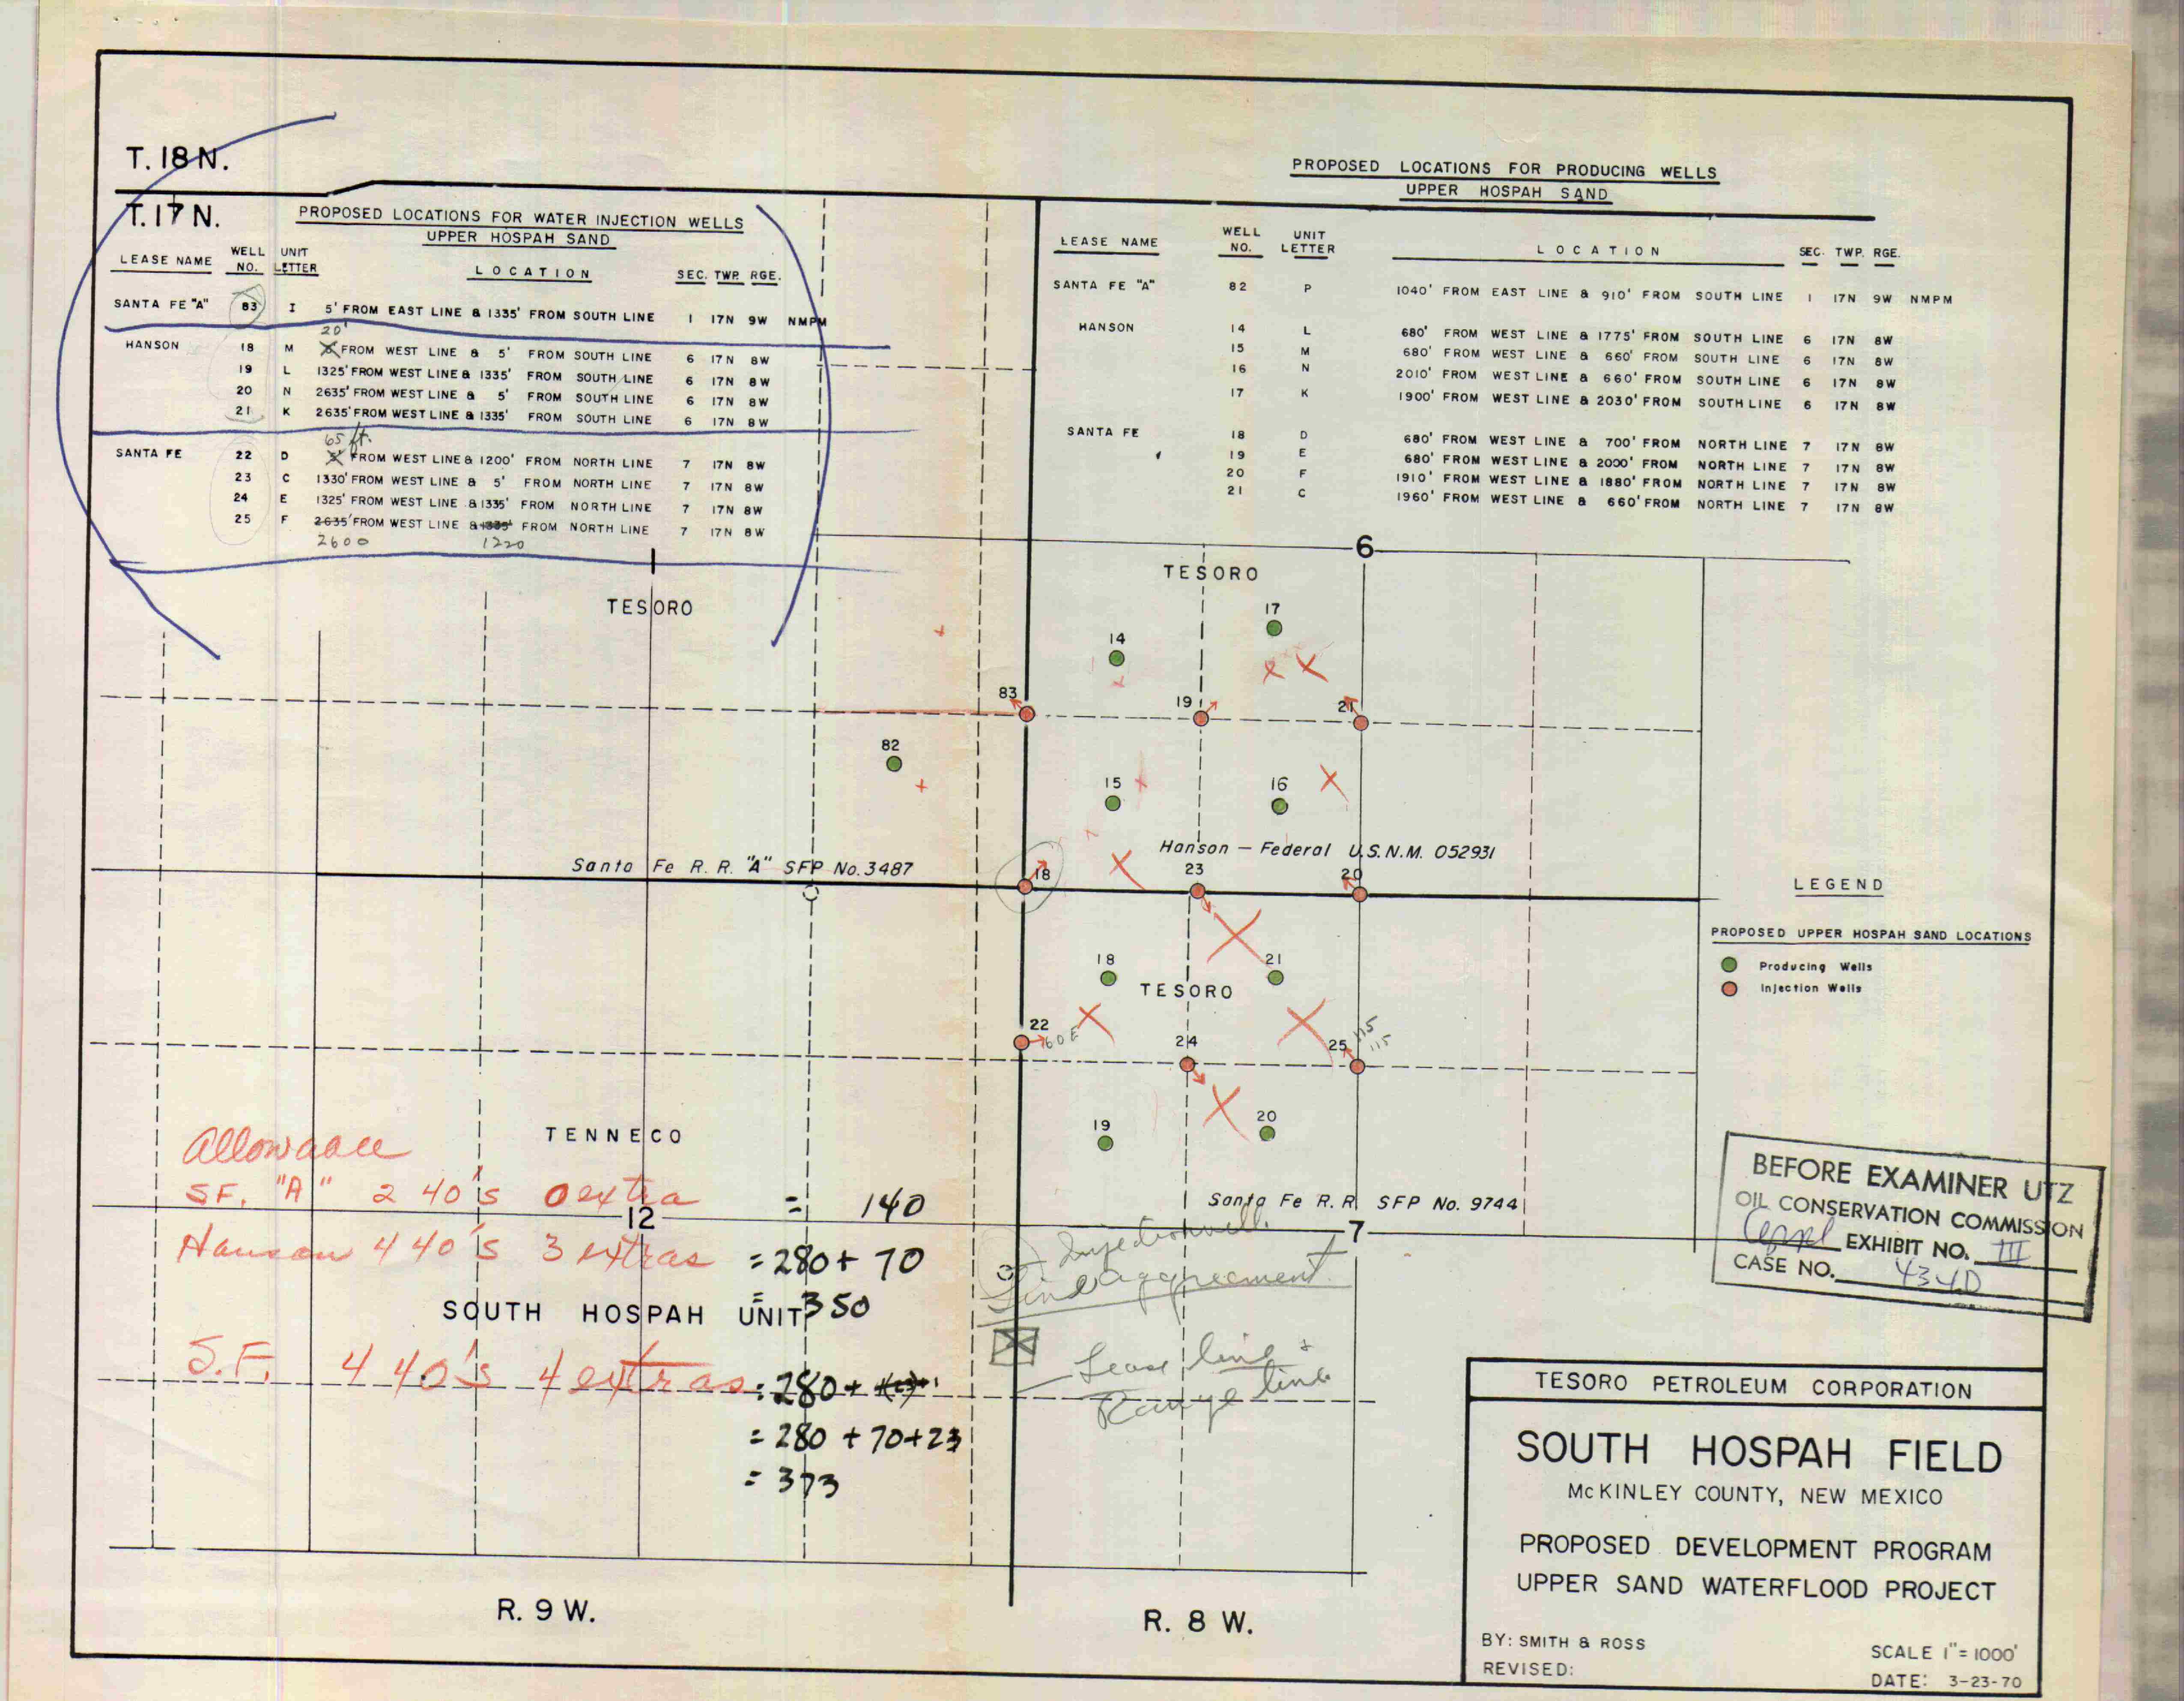 T. 18 N.
T. 17 N.
PROPOSED LOCATIONS FOR WATER INJECTION WELLS
UPPER HOSPAH SAND
LEASE NAME WELL NO. UNIT LETTER LOCATION SEC. TWP. RGE.
SANTA FE "A" 83 I 5' FROM EAST LINE & 1335' FROM SOUTH LINE 1 17N 9W NMPM
20'
HANSON 18 M FROM WEST LINE & 5' FROM SOUTH LINE 6 17N 8W
19 L 1325' FROM WEST LINE & 1335' FROM SOUTH LINE 6 17N 8W
20 N 2635' FROM WEST LINE & 5' FROM SOUTH LINE 6 17N 8W
21 K 2635' FROM WEST LINE & 1335' FROM SOUTH LINE 6 17N 8W
65 ft.
SANTA FE 22 D FROM WEST LINE & 1200' FROM NORTH LINE 7 17N 8W
23 C 1330' FROM WEST LINE & 5' FROM NORTH LINE 7 17N 8W
24 E 1325' FROM WEST LINE & 1335' FROM NORTH LINE 7 17N 8W
25 F 2635' FROM WEST LINE & 1335' FROM NORTH LINE 7 17N 8W
2600 1220
PROPOSED LOCATIONS FOR PRODUCING WELLS
UPPER HOSPAH SAND
LEASE NAME WELL NO. UNIT LETTER LOCATION SEC. TWP. RGE.
SANTA FE "A" 82 P 1040' FROM EAST LINE & 910' FROM SOUTH LINE 1 17N 9W NMPM
HANSON 14 L 680' FROM WEST LINE & 1775' FROM SOUTH LINE 6 17N 8W
15 M 680' FROM WEST LINE & 660' FROM SOUTH LINE 6 17N 8W
16 N 2010' FROM WEST LINE & 660' FROM SOUTH LINE 6 17N 8W
17 K 1900' FROM WEST LINE & 2030' FROM SOUTH LINE 6 17N 8W
SANTA FE 18 D 680' FROM WEST LINE & 700' FROM NORTH LINE 7 17N 8W
19 E 680' FROM WEST LINE & 2000' FROM NORTH LINE 7 17N 8W
20 F 1910' FROM WEST LINE & 1880' FROM NORTH LINE 7 17N 8W
21 C 1960' FROM WEST LINE & 660' FROM NORTH LINE 7 17N 8W
1
6
TESORO
TESORO
17
14
83
19
21
82
15
16
Hanson – Federal U.S.N.M. 052931
Santa Fe R. R. "A" SFP No. 3487
18
23
20
18
21
TESORO
22
60 E
24
25
115
115
19
20
LEGEND
PROPOSED UPPER HOSPAH SAND LOCATIONS
Producing Wells
Injection Wells
TENNECO
Santa Fe R. R. SFP No. 9744
12
7
SOUTH HOSPAH UNIT
S.F. "A" 2 40's 0 extra = 140
Hanson 4 40's 3 extras = 280 + 70
= 350
S.F. 4 40's 4 extras = 280 +
= 280 + 70 + 23
= 373
Injection well
Line aggreement
Lease line &
Range line
BEFORE EXAMINER UTZ
OIL CONSERVATION COMMISSION
EXHIBIT NO. III
CASE NO. 4340
R. 9 W.
R. 8 W.
TESORO PETROLEUM CORPORATION
SOUTH HOSPAH FIELD
McKINLEY COUNTY, NEW MEXICO
PROPOSED DEVELOPMENT PROGRAM
UPPER SAND WATERFLOOD PROJECT
BY: SMITH & ROSS
REVISED:
SCALE 1" = 1000'
DATE: 3-23-70